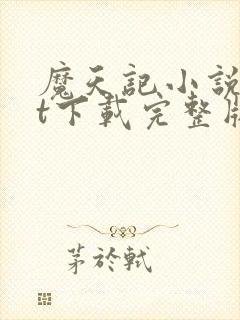 魔天記小說
t下載完整版
茅於軾